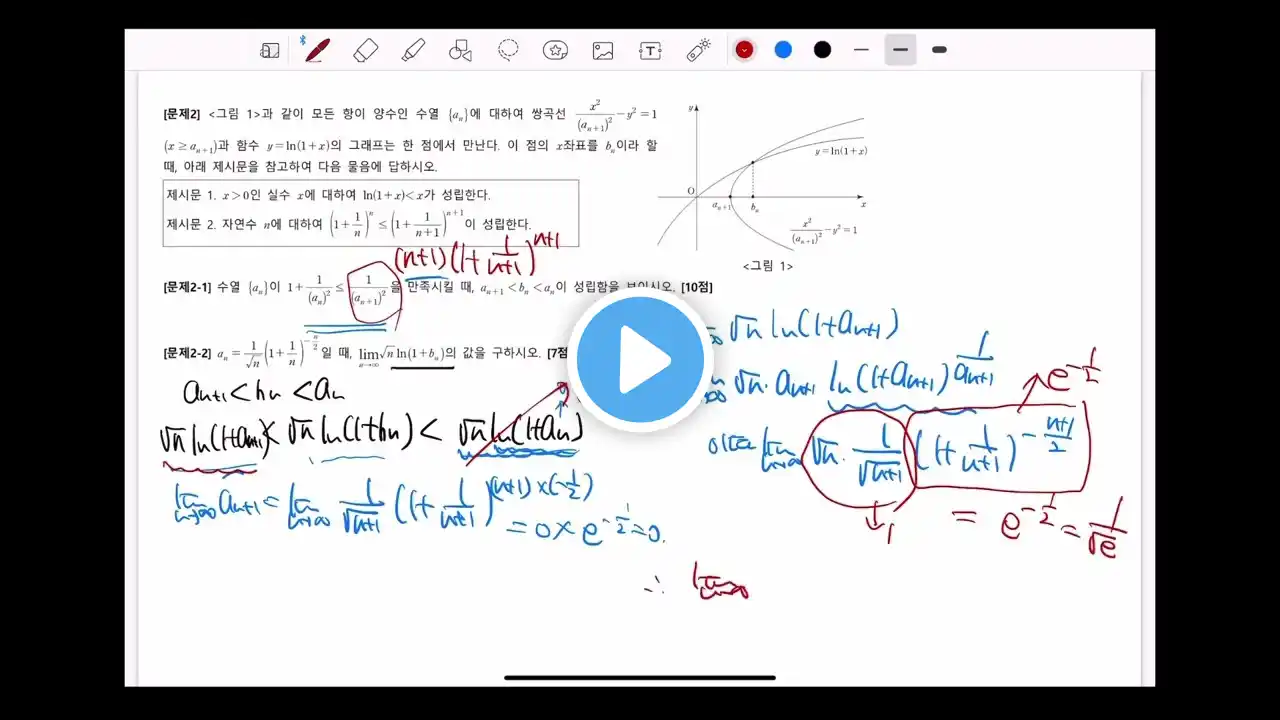 [문제2] <그림 1>과 같이 모든 항이 양수인 수열 {aₙ}에 대하여 쌍곡선 x²/(aₙ₊₁)² − y² = 1
(x ≥ aₙ₊₁)과 함수 y = ln(1+x)의 그래프는 한 점에서 만난다. 이 점의 x좌표를 bₙ이라 할
때, 아래 제시문을 참고하여 다음 물음에 답하시오.
제시문 1. x>0인 실수 x에 대하여 ln(1+x)<x가 성립한다.
제시문 2. 자연수 n에 대하여 (1+1/n)ⁿ ≤ (1+1/(n+1))ⁿ⁺¹ 이 성립한다.
y
y = ln(1+x)
O
aₙ₊₁
bₙ
x
x²/(aₙ₊₁)² − y² = 1
<그림 1>
(n+1)(1+1/(n+1))ⁿ⁺¹
[문제2-1] 수열 {aₙ}이 1+1/(aₙ)² ≤ 1/(aₙ₊₁)² 을 만족시킬 때, aₙ₊₁<bₙ<aₙ이 성립함을 보이시오. [10점]
[문제2-2] aₙ = 1/√n (1+1/n)^(−n/2) 일 때, lim n→∞ √n ln(1+bₙ)의 값을 구하시오. [7점
aₙ₊₁ < bₙ < aₙ
√n ln(1+aₙ₊₁) < √n ln(1+bₙ) < √n ln(1+aₙ)
lim n→∞ aₙ₊₁ = lim n→∞ 1/√(n+1) (1+1/(n+1))^((n+1)×(−1/2))
= 0 × e^(−1/2) = 0.
√n ln(1+aₙ₊₁)
√n · aₙ₊₁ ln(1+aₙ₊₁)^(1/aₙ₊₁)
e^(−1/2)
lim n→∞ √n · 1/√(n+1) (1+1/(n+1))^(−(n+1)/2)
1
= e^(−1/2) = 1/√e
∴ lim